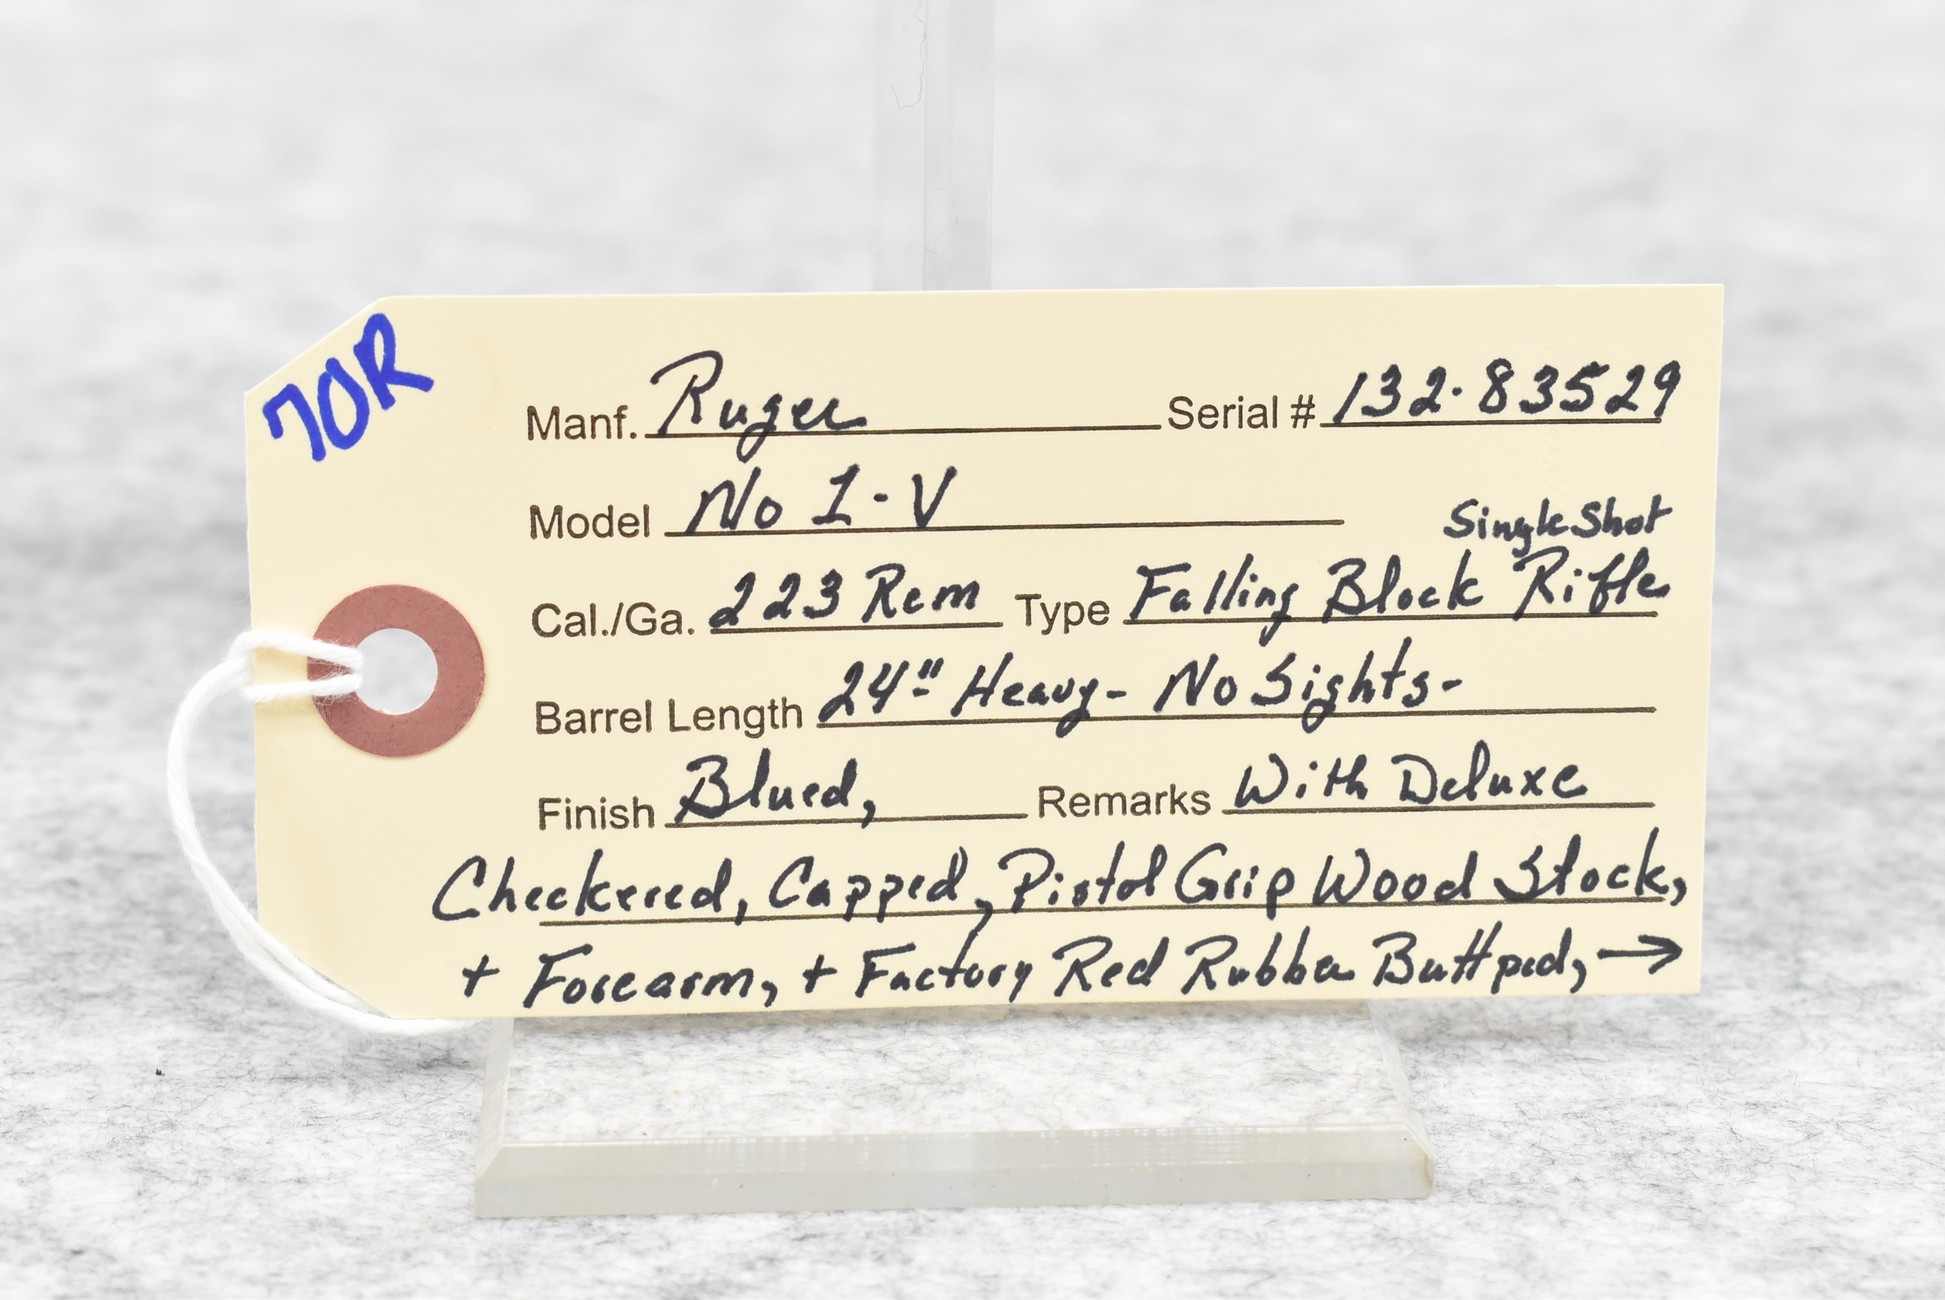 70R
Manf. Ruger Serial # 132-83529
Model No 1-V
Single Shot
Cal./Ga. 223 Rem Type Falling Block Rifle
Barrel Length 24" Heavy - No Sights -
Finish Blued, Remarks With Deluxe
Checkered, Capped, Pistol Grip Wood Stock,
+ Forearm, + Factory Red Rubber Buttpad, →